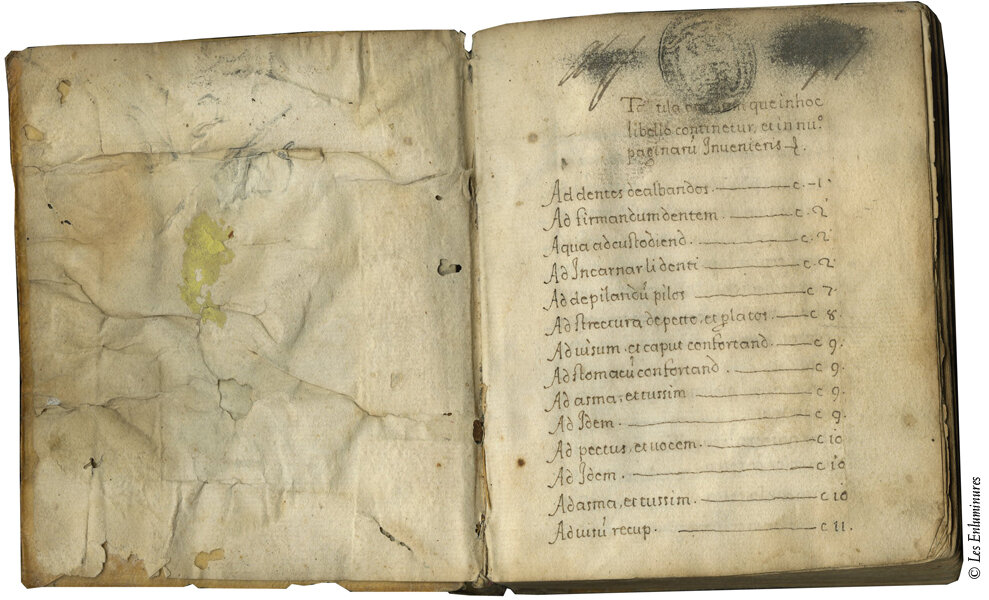 que in hoc
libello continetur, et in nu.º
paginarũ Invenieris
Ad dentes dealbandos. c. 1
Ad firmandum dentem. c. 2
Aqua ad custodiend. c. 2
Ad Incarnar li denti c. 2
Ad depilandũ pilos c. 7
Ad strectura de petto, et c. 8.
Ad visum, et caput confortand. c 9.
Ad stomacũ confortand. c 9.
Ad asma, et tussim c 9.
Ad Idem. c 9.
Ad pectus, et vocem. c 10
Ad Idem. c 10
Ad asma, et tussim. c 10
Ad visũ recup. c 11.
© Les Enluminures